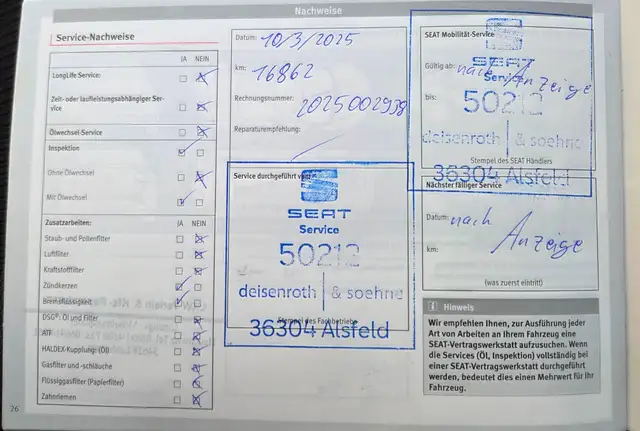 Nachweise
Service-Nachweise
JA NEIN
LongLife Service:
Zeit- oder laufleistungsabhängiger Ser-
vice
Ölwechsel-Service
Inspektion
Ohne Ölwechsel
Mit Ölwechsel
Zusatzarbeiten: JA NEIN
Staub- und Pollenfilter
Luftfilter
Kraftstofffilter
Zündkerzen
Bremsflüssigkeit
DSG®: Öl und Filter
ATF
HALDEX-Kupplung: (Öl)
Gasfilter und -schläuche
Flüssiggasfilter (Papierfilter)
Zahnriemen
26
Datum: 10/3/2025
km: 16862
Rechnungsnummer:
2025002938
Reparaturempfehlung:
Service durchgeführt von:
SEAT
Service
50212
deisenroth & soehne
Stempel des Fachbetriebs
36304 Alsfeld
SEAT Mobilität-Service
SEAT
Gültig ab: nach Anzeige
Service
bis: 50212
deisenroth & soehne
Stempel des SEAT Händlers
36304 Alsfeld
Nächster fälliger Service
Datum: nach
km: Anzeige
(was zuerst eintritt)
Hinweis
Wir empfehlen Ihnen, zur Ausführung jeder
Art von Arbeiten an Ihrem Fahrzeug eine
SEAT-Vertragswerkstatt aufzusuchen. Wenn
die Services (Öl, Inspektion) vollständig bei
einer SEAT-Vertragswerkstatt durchgeführt
werden, bedeutet dies einen Mehrwert für Ihr
Fahrzeug.